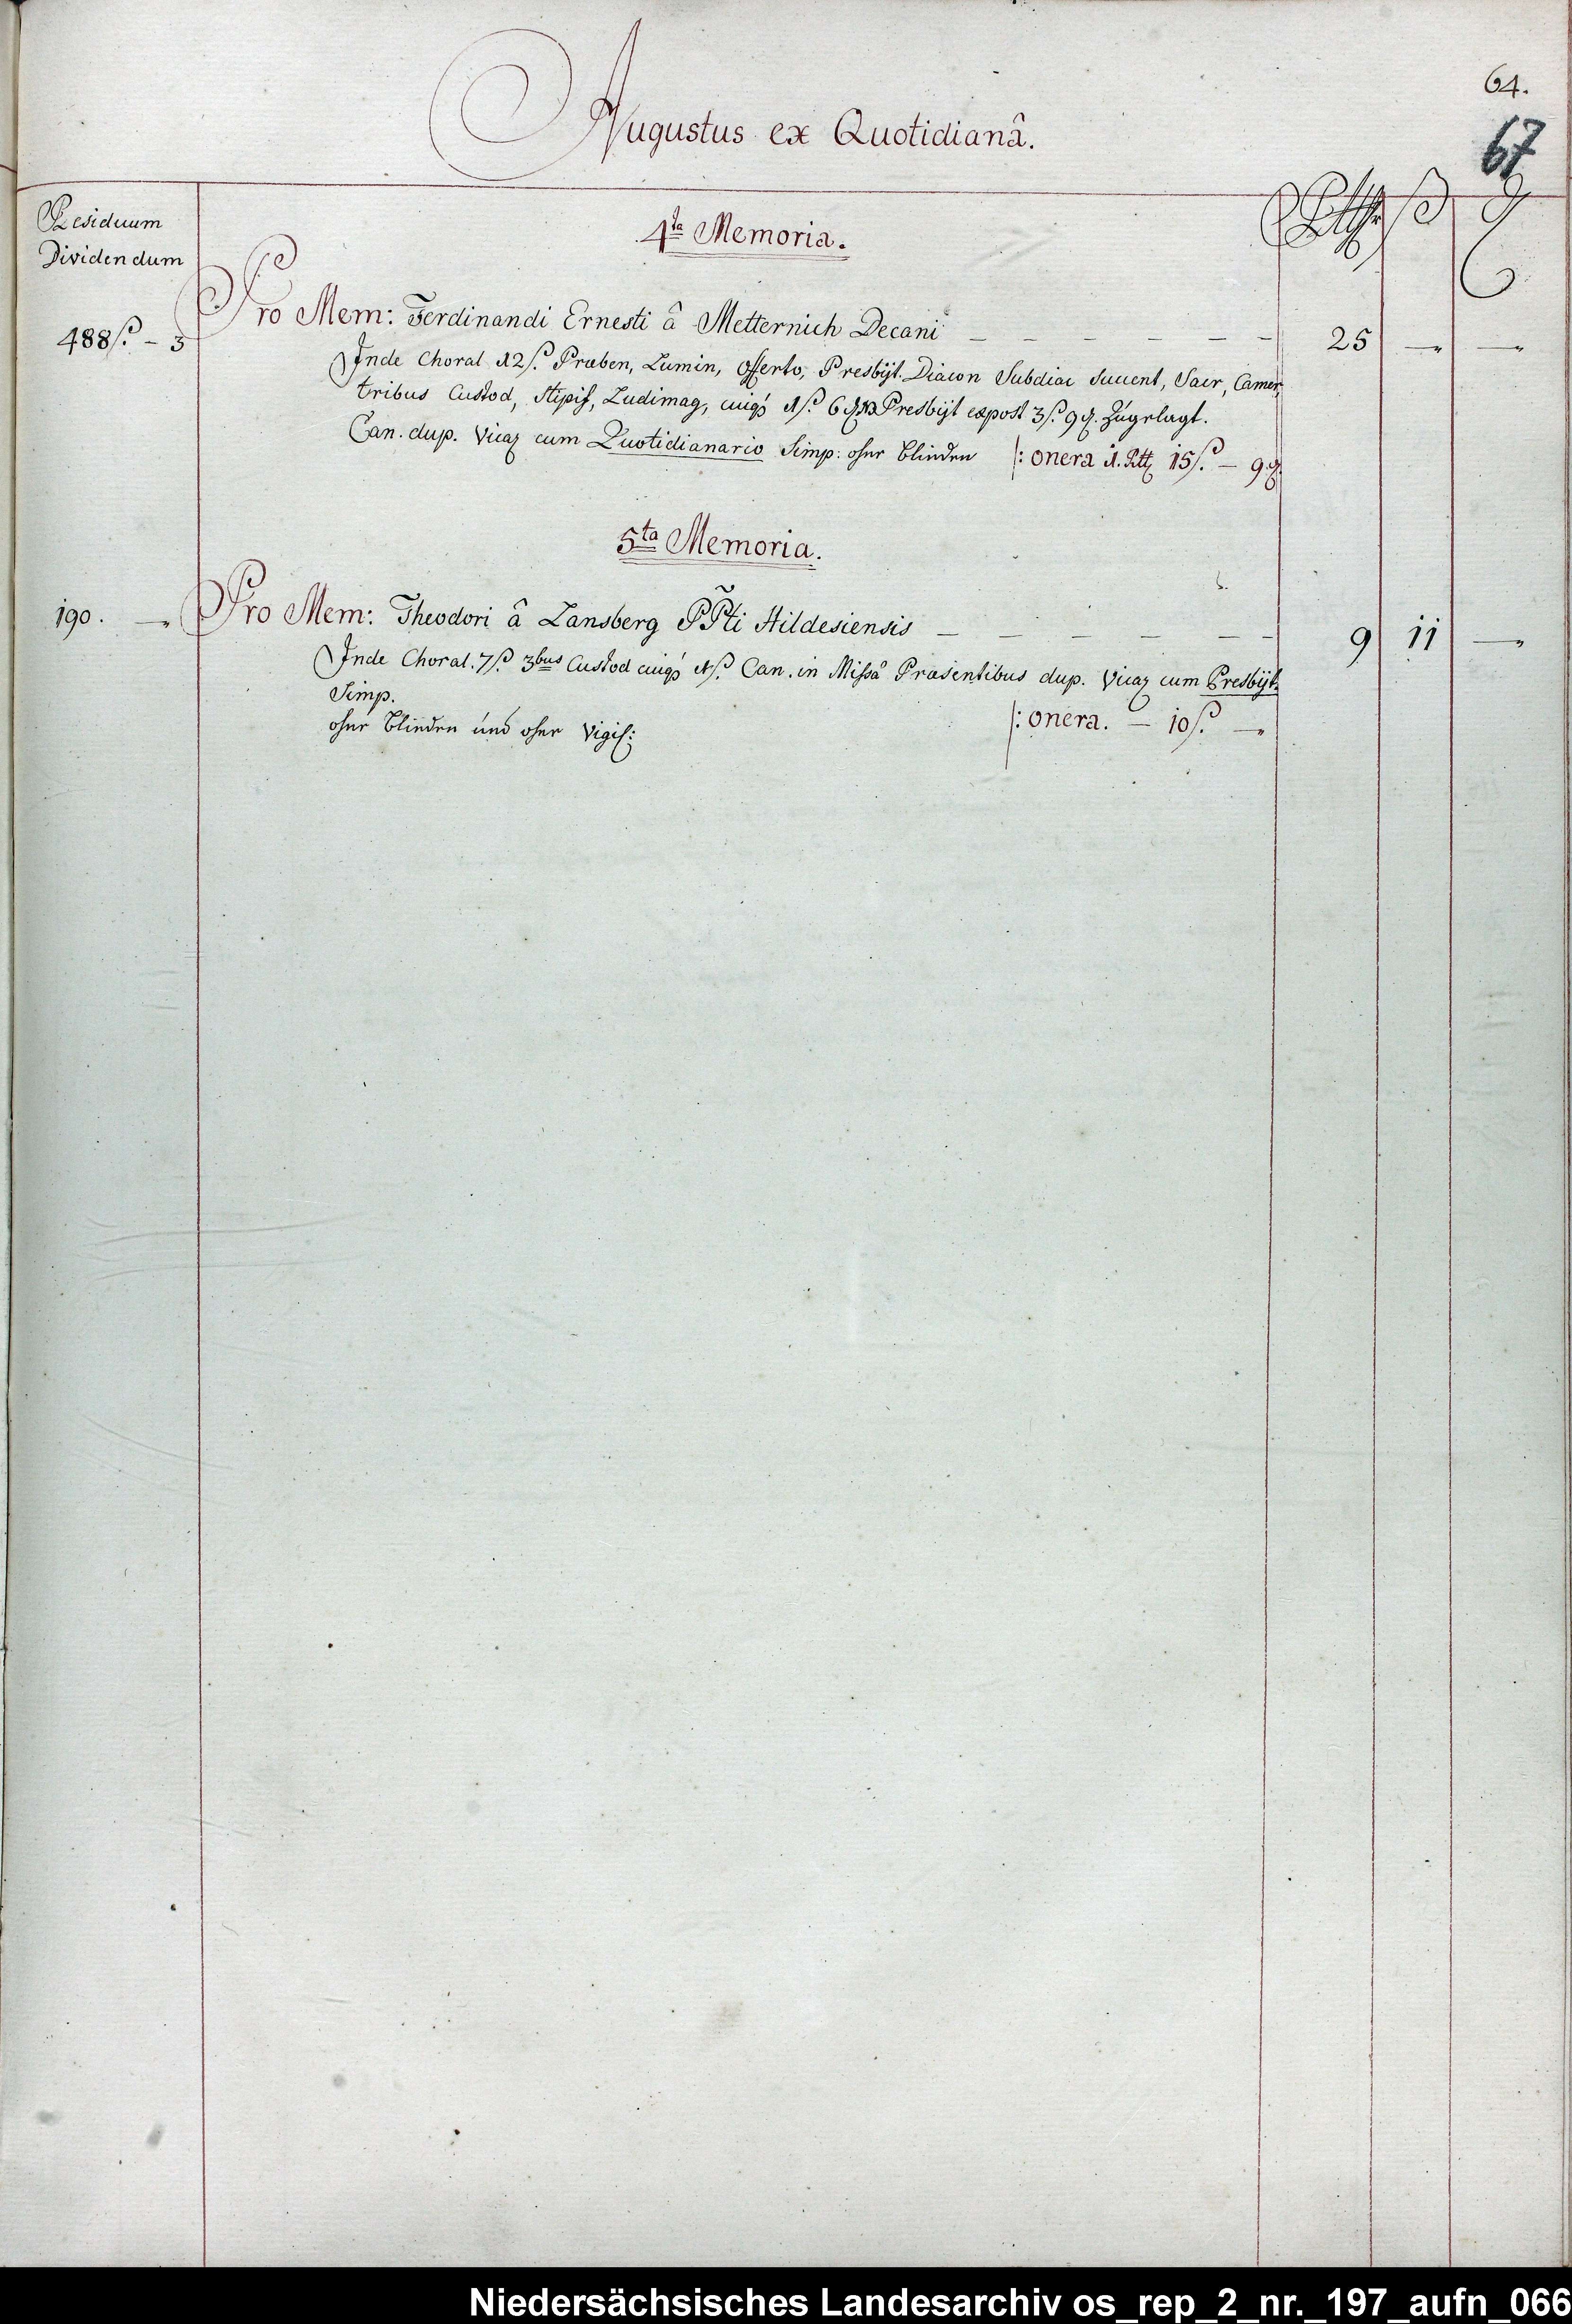 64.
67
Augustus ex Quotidianâ.
Residuum
Dividendum
Rtthr ß ₰
4ta Memoria.
488ß. - 3
Pro Mem: Ferdinandi Ernesti â Metternich Decani — — — — — — 25 — —
Inde Choral 12ß. Præben, Lumin, Offerto, Presbijt. Diacon Subdiac Succent, Sacr, Camer,
tribus Custod, Stipif, Ludimag, cuiqs 1ß. 6₰ NB Presbijt expost 3ß. 9₰. Zugelagt.
Can. dup. Vicaz cum Quotidianario Simp: ohne blinden |: onera 1. Rtt 15ß. — 9₰.
5ta Memoria.
190. —
Pro Mem: Theodori â Lansberg PP̃ti Hildesiensis — — — — — — 9 11 —
Inde Choral. 7ß. 3bus Custod cuiqs 1ß. Can. in Missâ Præsentibus dup. Vicaz cum Presbijt.
Simp.
ohne blinden und ohne Vigil: |: onera. — 10ß. —
Niedersächsisches Landesarchiv os_rep_2_nr._197_aufn_066